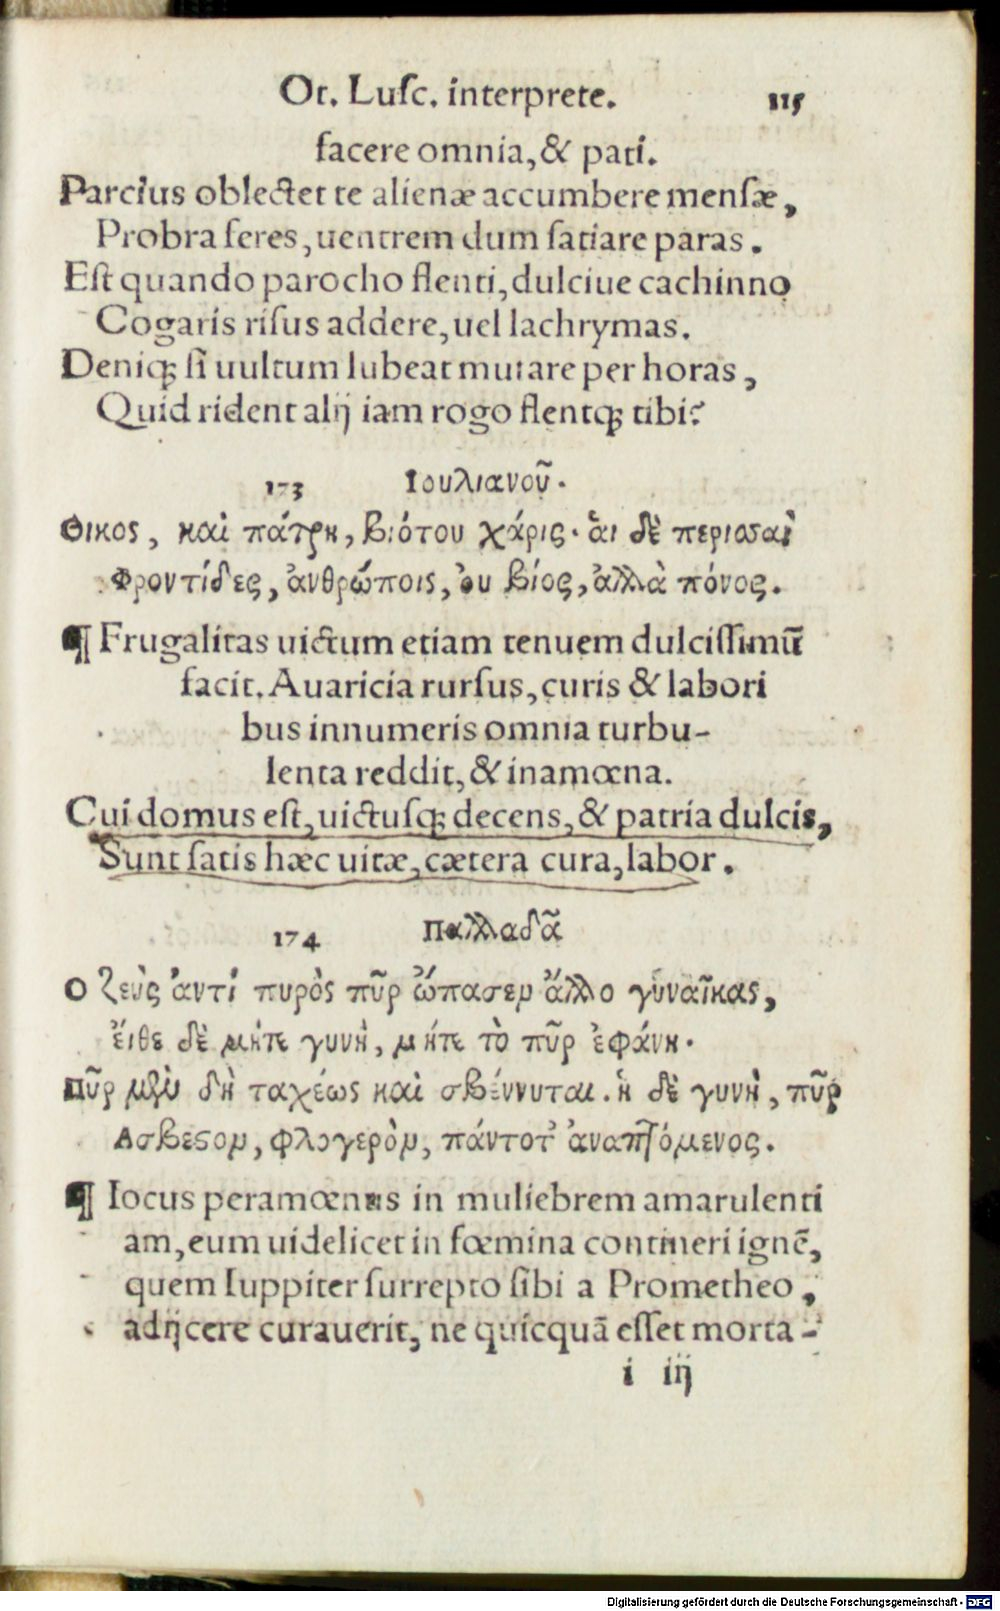 Ot. Lusc. interprete. 115
facere omnia, & pati.
Parcius oblectet te alienæ accumbere mensæ,
Probra feres, uentrem dum satiare paras.
Est quando parocho flenti, dulciue cachinno
Cogaris risus addere, uel lachrymas.
Deniq; si uultum lubeat mutare per horas,
Quid rident alij iam rogo flentq; tibi?
173 Ιουλιανοῦ.
Οικος, καὶ πάτρη, βιότου χάρις. ἁι δὲ περισσαὶ
Φροντίδες, ἀνθρώποις, ὀυ βίος, ἀλλὰ πόνος.
¶ Frugalitas uictum etiam tenuem dulcissimũ
facit. Auaricia rursus, curis & labori
bus innumeris omnia turbu-
lenta reddit, & inamœna.
Cui domus est, uictusq; decens, & patria dulcis,
Sunt satis hæc uitæ, cætera cura, labor.
174 Παλλαδᾶ
Ο ζεὺς ἀντὶ πυρὸς πῦρ ὤπασεν ἄλλο γυναῖκας,
ἔιθε δὲ μήτε γυνὴ, μήτε τὸ πῦρ ἐφάνη.
Πῦρ μὲν δὴ ταχέως καὶ σβέννυται. ἡ δὲ γυνὴ, πῦρ
Ασβεστον, φλογερὸν, πάντοτ᾽ ἀναπτόμενος.
¶ Iocus peramœnus in muliebrem amarulenti
am, eum uidelicet in fœmina contineri ignẽ,
quem Iuppiter surrepto sibi a Prometheo,
adijcere curauerit, ne quicquã esset morta-
i iij
Digitalisierung gefördert durch die Deutsche Forschungsgemeinschaft - DFG